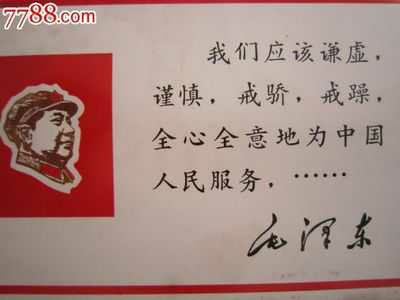 7788.com
我们应该谦虚，
谨慎，戒骄，戒躁，
全心全意地为中国
人民服务，……
毛泽东